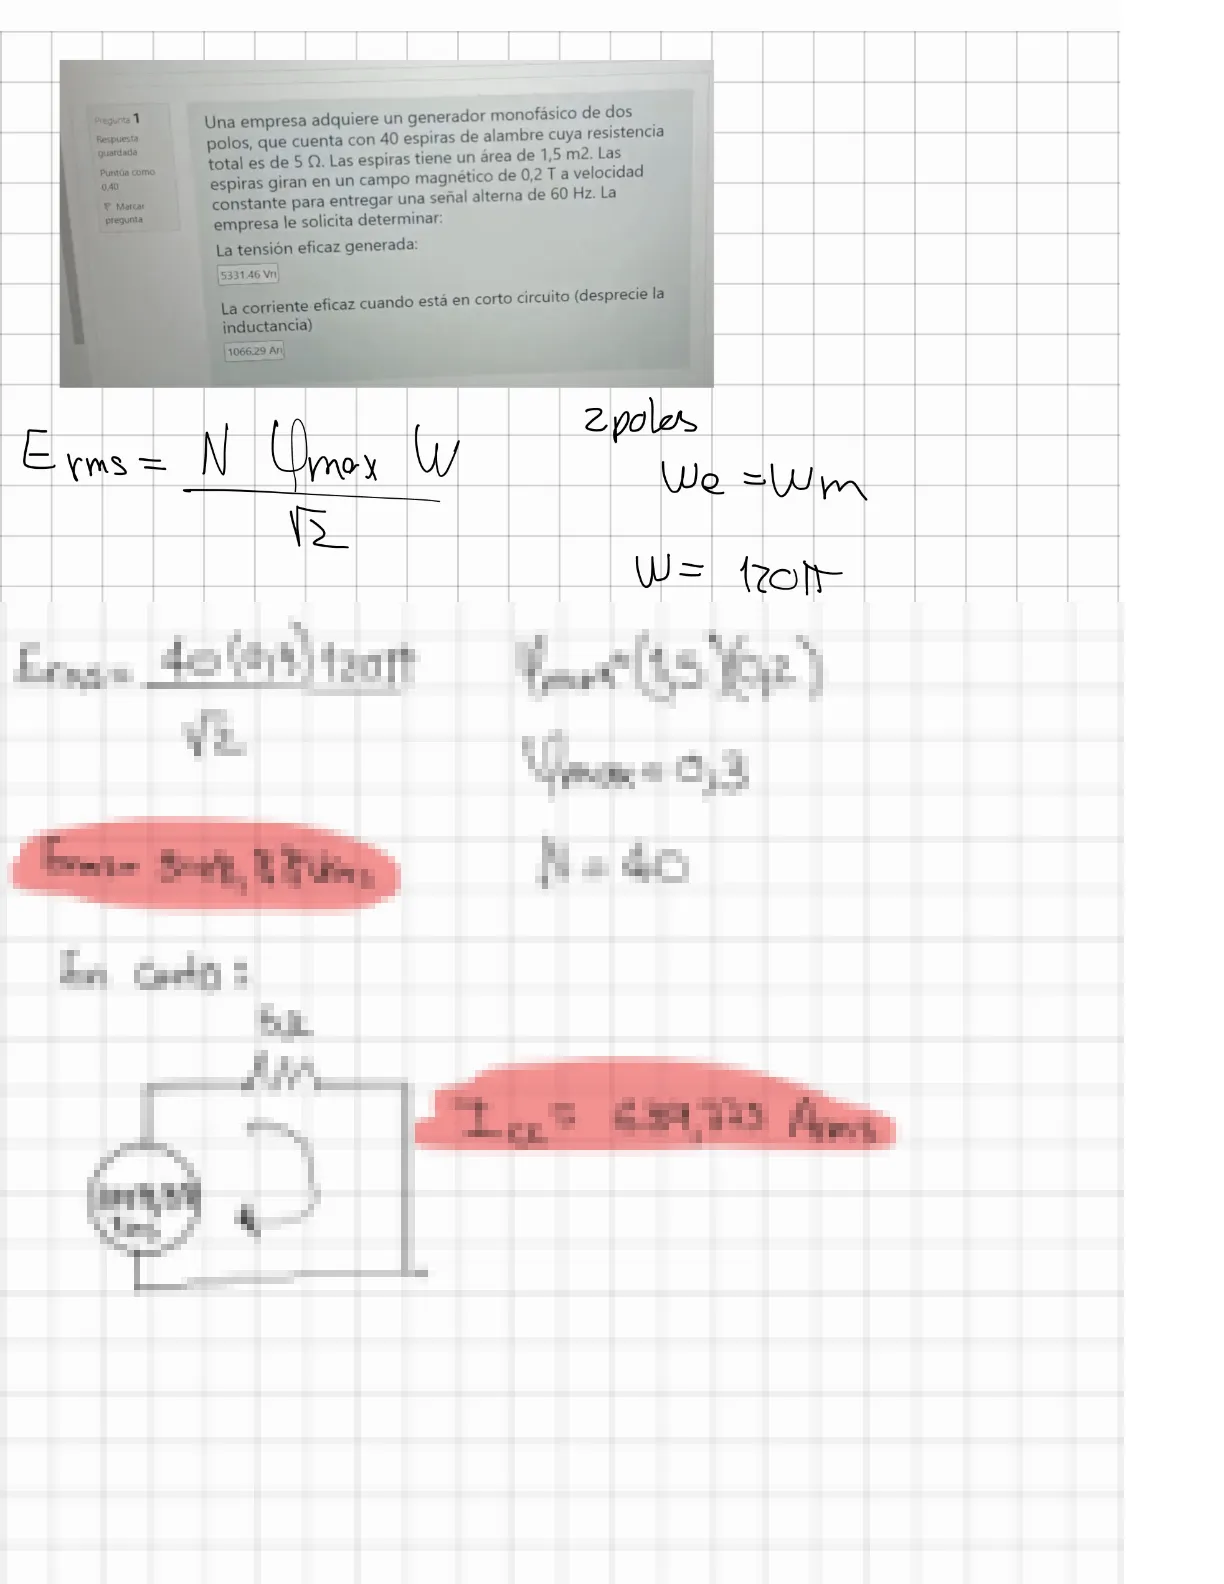 Pregunta 1
Respuesta
guardada
Puntúa como
0,40
Marcar
pregunta
Una empresa adquiere un generador monofásico de dos
polos, que cuenta con 40 espiras de alambre cuya resistencia
total es de 5 Ω. Las espiras tiene un área de 1,5 m2. Las
espiras giran en un campo magnético de 0,2 T a velocidad
constante para entregar una señal alterna de 60 Hz. La
empresa le solicita determinar:
La tensión eficaz generada:
5331.46 Vri
La corriente eficaz cuando está en corto círcuito (desprecie la
inductancia)
1066.29 Ari
2 poles
E rms = N φmax W / √2
We = Wm
W = 120π
φmax = (1,5)(0,2)
√2
φmax = 0,3
N = 40
En corto: